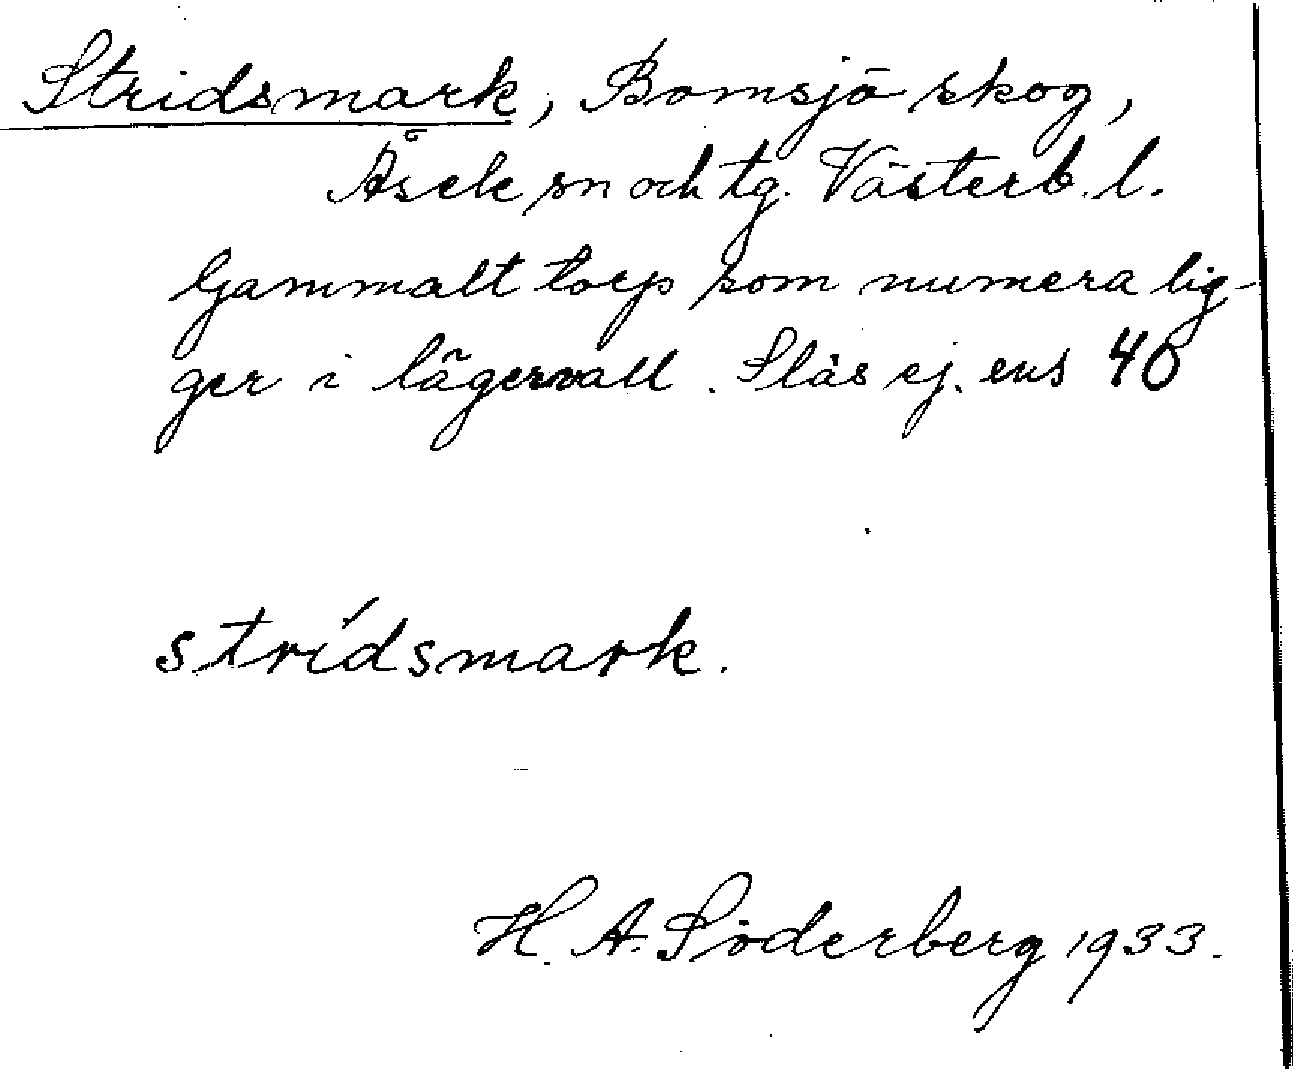 Stridsmark, Bomsjö skog,
Åsele sn och tg. Västerb. l.
Gammalt torp som numera lig-
ger i lägervall. Slås ej. ens 40
strídsmark.
H. A. Söderberg 1933.